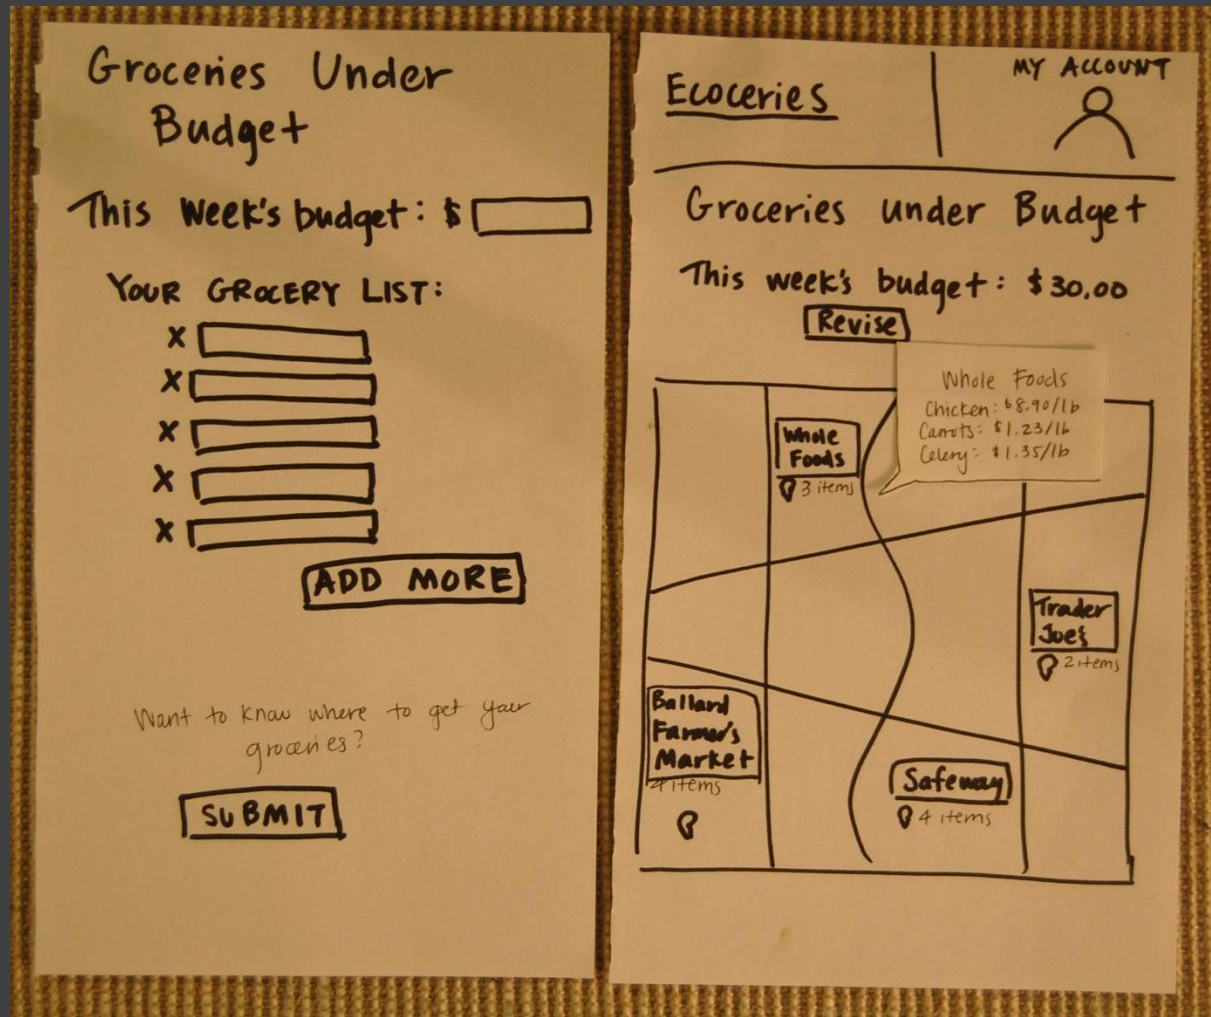 Groceries Under
Budget
This Week's budget: $
YOUR GROCERY LIST:
X
X
X
X
X
ADD MORE
Want to know where to get your
groceries?
SUBMIT
Ecoceries
MY ACCOUNT
Groceries under Budget
This week's budget: $30.00
Revise
Whole Foods
Chicken: $8.90/lb
Carrots: $1.23/lb
Celery: $1.35/lb
Whole
Foods
3 items
Trader
Joe's
2 items
Ballard
Farmer's
Market
4 items
Safeway
4 items